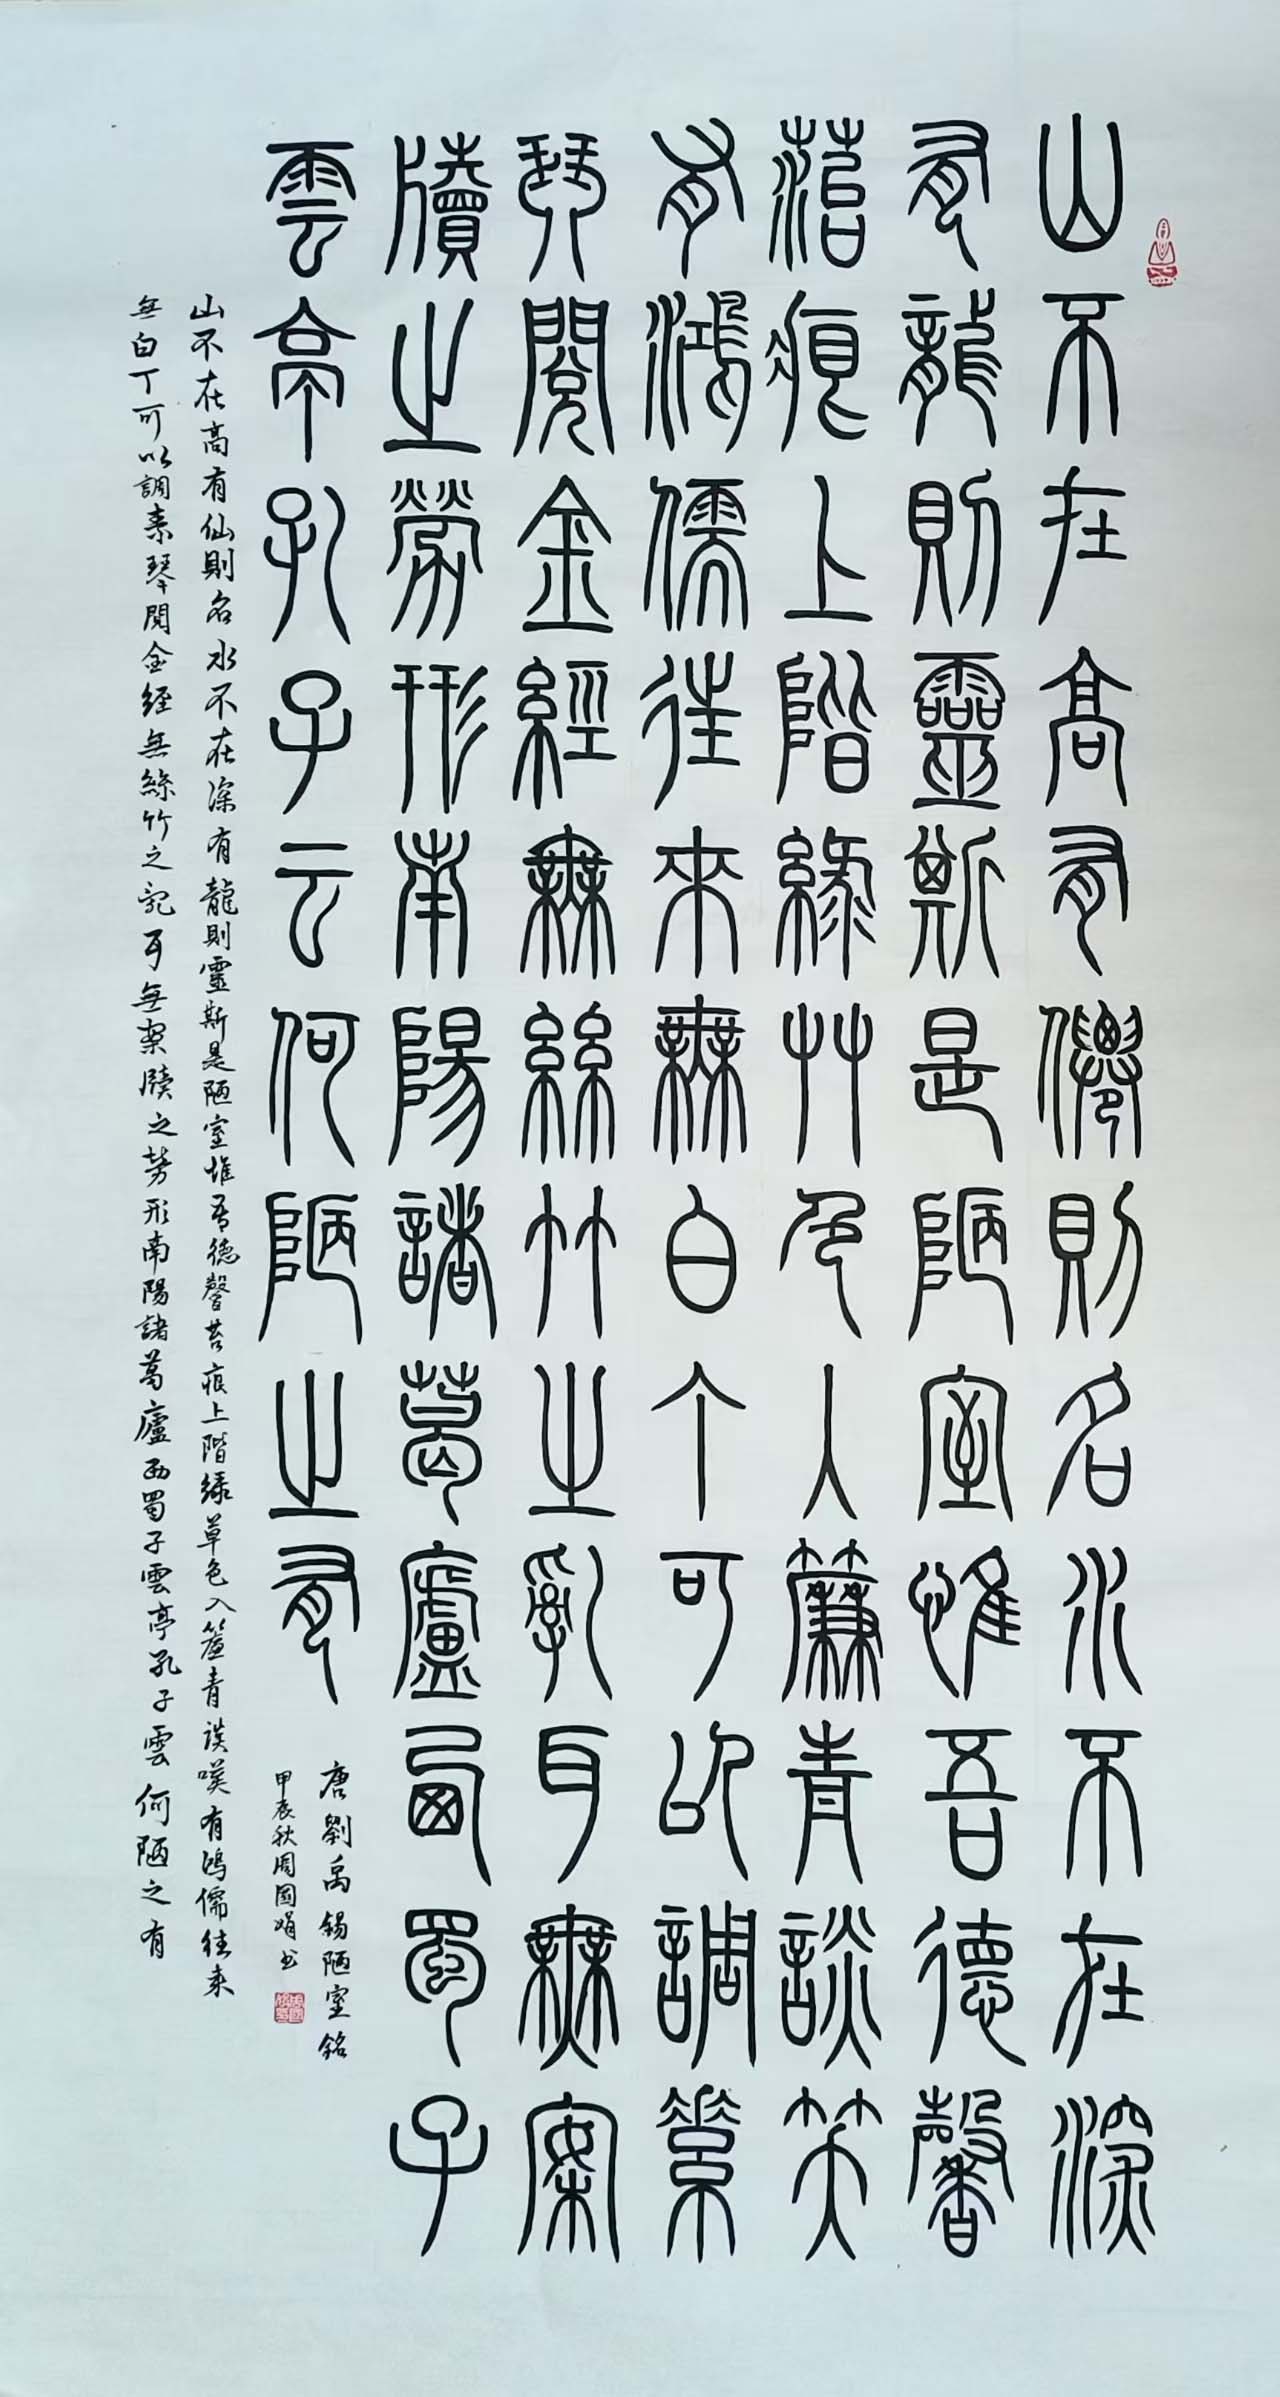 山不在高有僊則名水不在深
有龍則靈斯是陋室惟吾德馨
菭痕上階綠艸色入簾青談笑
有鴻儒往來無白丁可以調素
琴閱金經無絲竹之亂耳無案
牘之勞形南陽諸葛廬西蜀子
雲亭孔子云何陋之有
唐劉禹錫陋室銘
甲辰秋周國娟书
山不在高有仙則名水不在深有龍則靈斯是陋室惟吾德馨苔痕上階緑草色入簾青談嘆有鴻儒往来
無白丁可以調素琴閱金經無絲竹之乱耳無案牘之勞形南陽諸葛廬西蜀子雲亭孔子雲何陋之有